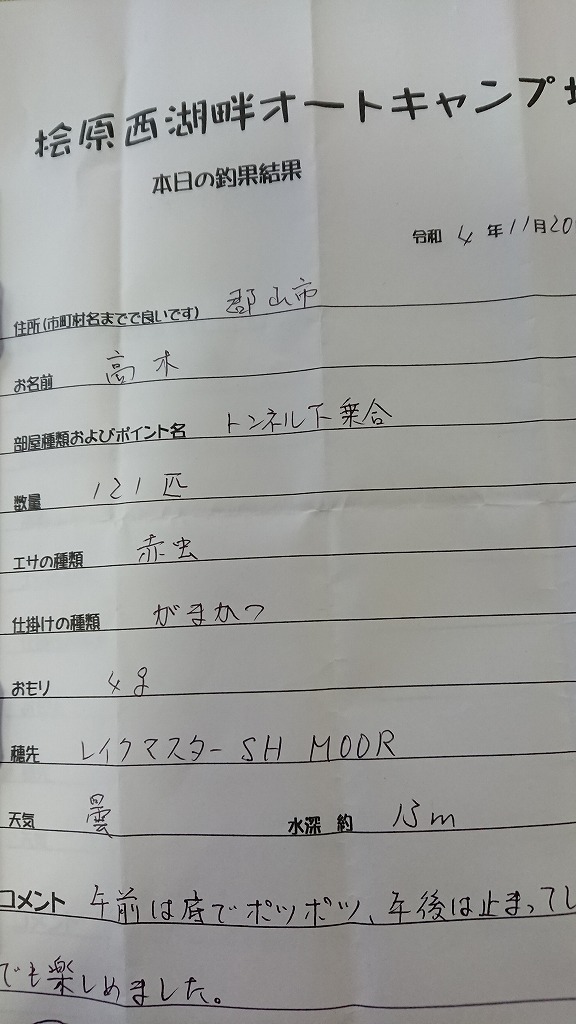 桧原西湖畔オートキャンプ
本日の釣果結果
令和 4 年 11月20
住所(市町村名までで良いです) 郡山市
お名前 高木
部屋種類およびポイント名 トンネル下乗合
数量 121匹
エサの種類 赤虫
仕掛けの種類 がまかつ
おもり 4g
穂先 レイクマスター SH M00R
天気 曇 水深 約 13m
コメント 午前は底でポツポツ、午後は止まってし
でも楽しめました。